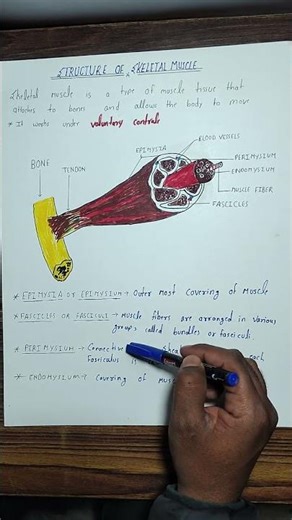 STRUCTURE OF SKELETAL MUSCLE
Skeletal muscle is a type of muscle tissue that
attaches to bones and allows the body to move
* It works under voluntary controls
BLOOD VESSELS
EPIMYSIA
PERIMYSIUM
BONE
ENDOMYSIUM
TENDON
MUSCLE FIBER
FASCICLES
* EPIMYSIA or EPIMYSIUM → Outer most covering of Muscle
* FASSICLES OR FASSICULI → Muscle fibers are arranged in various
groups called bundles or fasciculi.
* PERIMYSIUM → Connective each
Fasiculus
* ENDOMYSIUM → Covering of